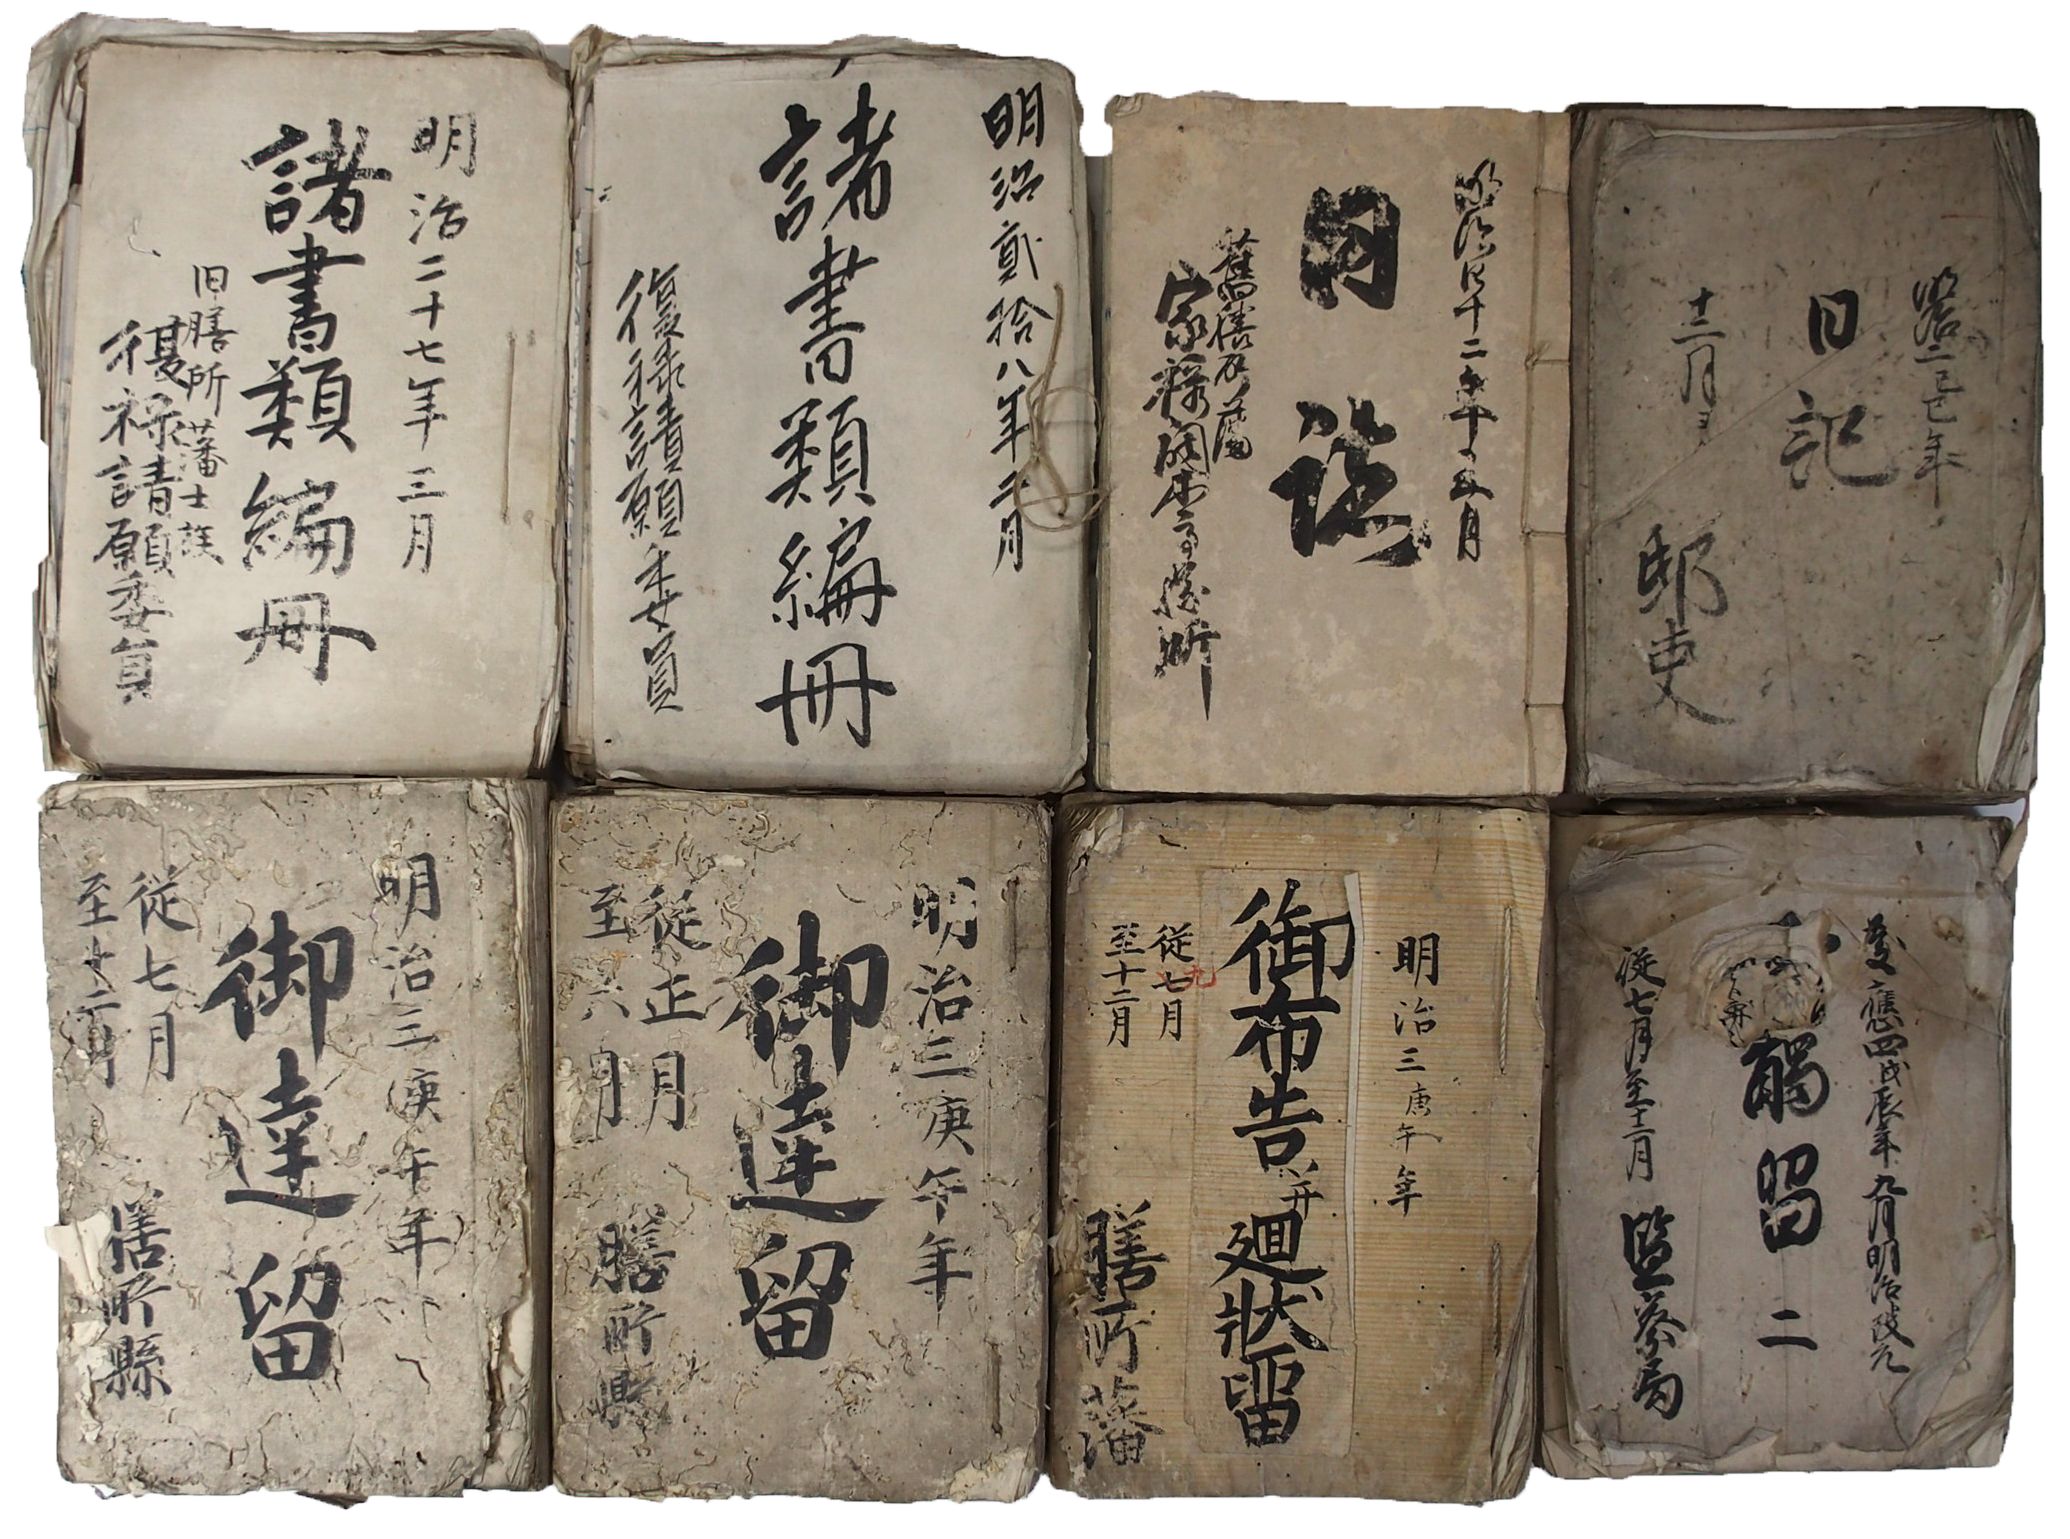 明治二十七年三月
諸書類編冊
旧膳所藩士族
復禄請願委員
明治貳拾八年二月
諸書類編冊
復禄請願委員
明治四十二年五月
日誌
舊膳所藩
家禄
日記
十二月ヨリ
邸吏
明治三庚午年
御達留
従七月
至十二月
膳所縣
明治三庚午年
御達留
従正月
至六月
膳所縣
明治三庚午年
御布告并廻状留
従七月
九
至十二月
膳所藩
慶應四戊辰年九月明治改元
觸留 二
従七月至十二月
監察局